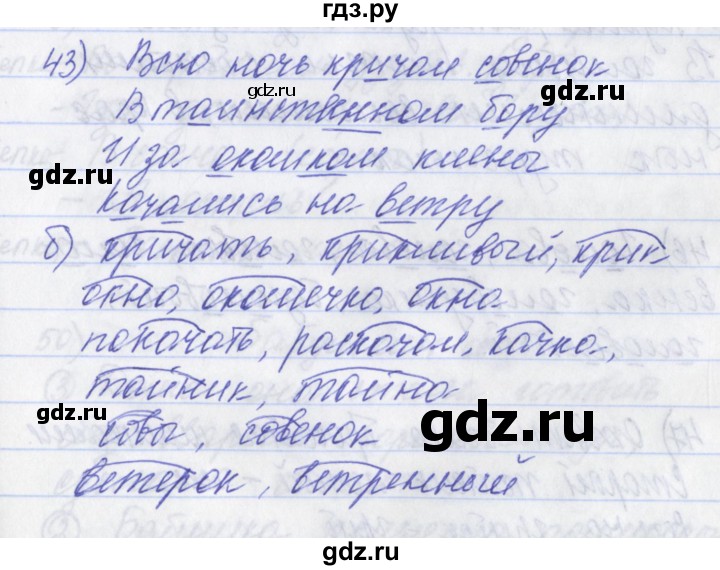 гдз.ру
43) Всю ночь кричал совёнок
gdz.ru
gdz.ru
В таинственном бору
И за окошком клёны
gdz.ru
gdz.ru
качались на ветру
б) кричать, крикливый, крик
окно, окошечко, окно.
покачать, раскачал, качка,
тайник, тайна
gdz.ru
совы, совенок
ветерок, ветренный
gdz.ru